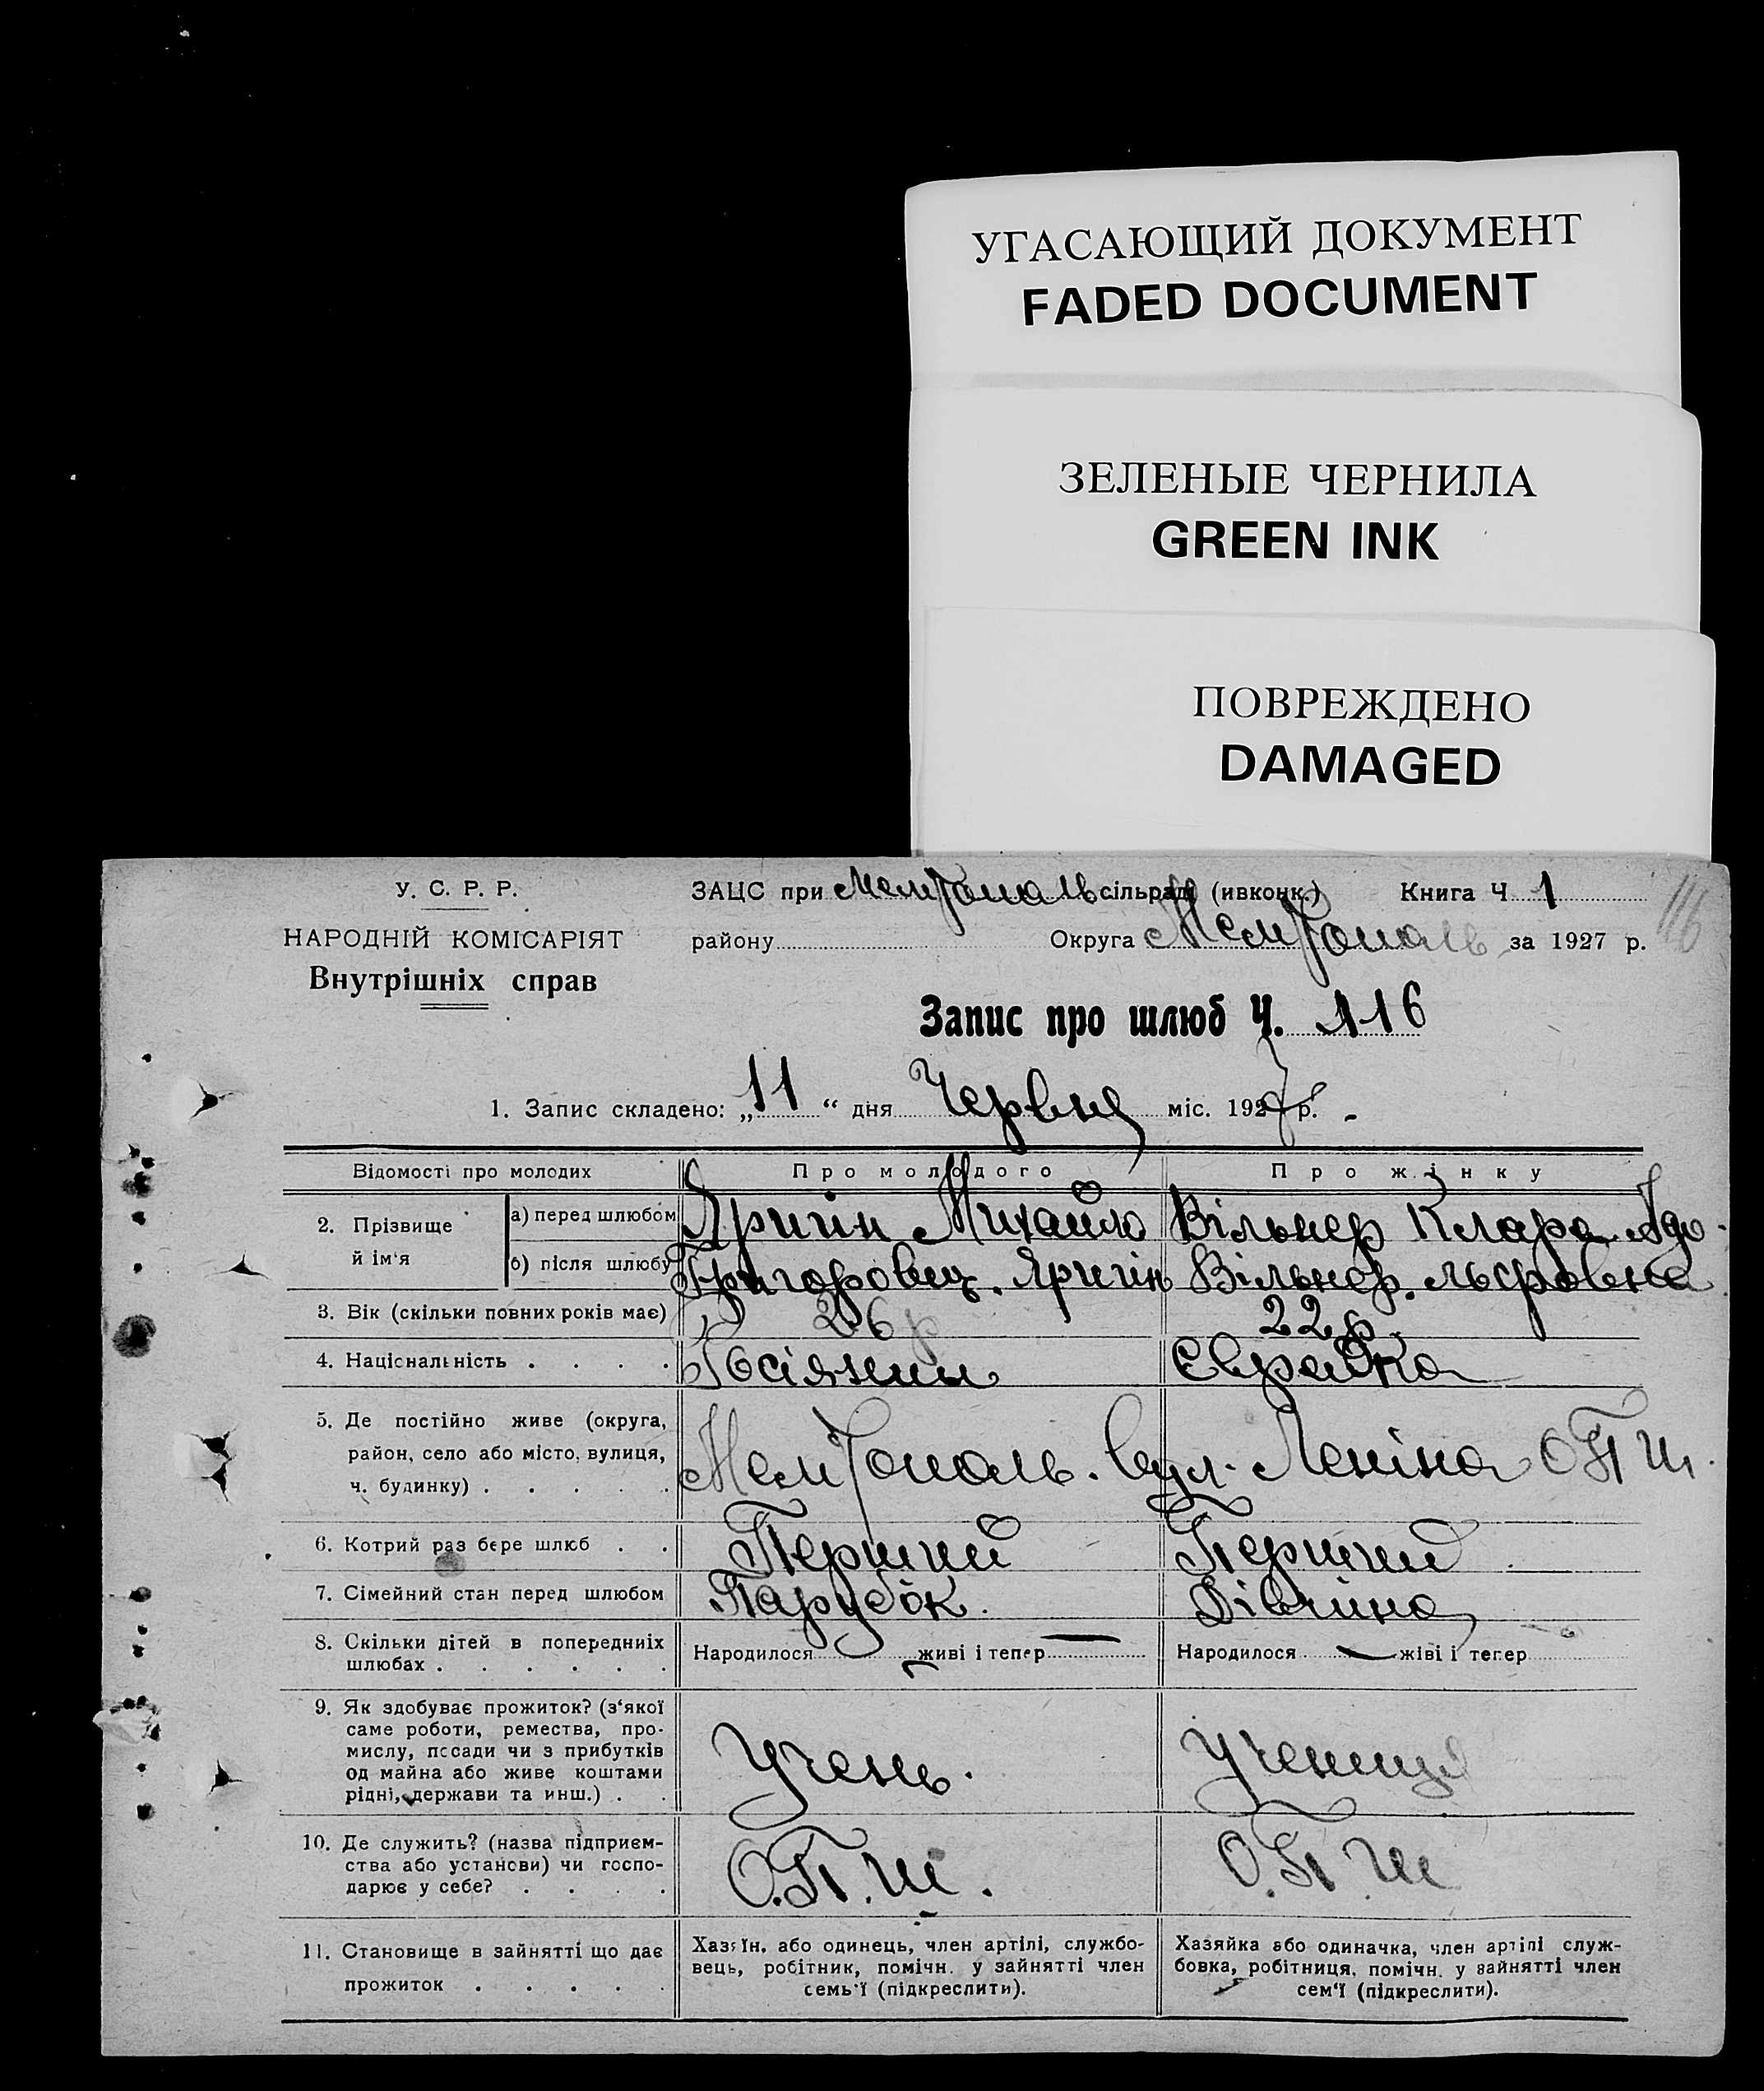 УГАСАЮЩИЙ ДОКУМЕНТ
FADED DOCUMENT
ЗЕЛЕНЫЕ ЧЕРНИЛА
GREEN INK
ПОВРЕЖДЕНО
DAMAGED
У. С. Р. Р.
НАРОДНІЙ КОМІСАРІЯТ
Внутрішніх справ
ЗАЦС при Мелітополь сільраді (ивконк.) Книга Ч 1
116
району Округа Мелітополь за 1927 р.
Запис про шлюб Ч. 116
1. Запис складено: „11“ дня Червня міс. 1927 р.
Відомості про молодих
Про молодого
Про жінку
2. Прізвище й ім'я
а) перед шлюбом
Яригін Михайло
Вільнер Клара Адо-
б) після шлюбу
Григоровец. Яригін
Вільнер. льфовна
3. Вік (скільки повних років має)
26 р
22 р.
4. Національність . . . .
Росіянин
Єврейка
5. Де постійно живе (округа,
район, село або місто, вулиця,
ч. будинку) . . . . .
Мелітополь. вул. Леніна ОПШ.
6. Котрий раз бере шлюб . .
Перший
Перший
7. Сімейний стан перед шлюбом
Парубок.
Дівчина
8. Скільки дітей в попередніх
шлюбах . . . . . .
Народилося — живі і тепер —
Народилося — жіві і тепер
9. Як здобуває прожиток? (з'якої
саме роботи, ремества, про-
мислу, посади чи з прибутків
од майна або живе коштами
рідні, держави та инш.) . .
Учень.
Учениця
10. Де служить? (назва підприєм-
ства або установи) чи госпо-
дарює у себе? . . . .
О.П.Ш.
О.П.Ш
11. Становище в зайнятті що дає
прожиток . . . . .
Хазяїн, або одинець, член артілі, службо-
вець, робітник, помічн. у зайнятті член
семь'ї (підкреслити).
Хазяйка або одиначка, член артілі служ-
бовка, робітниця, помічн. у зайнятті член
сем'ї (підкреслити).